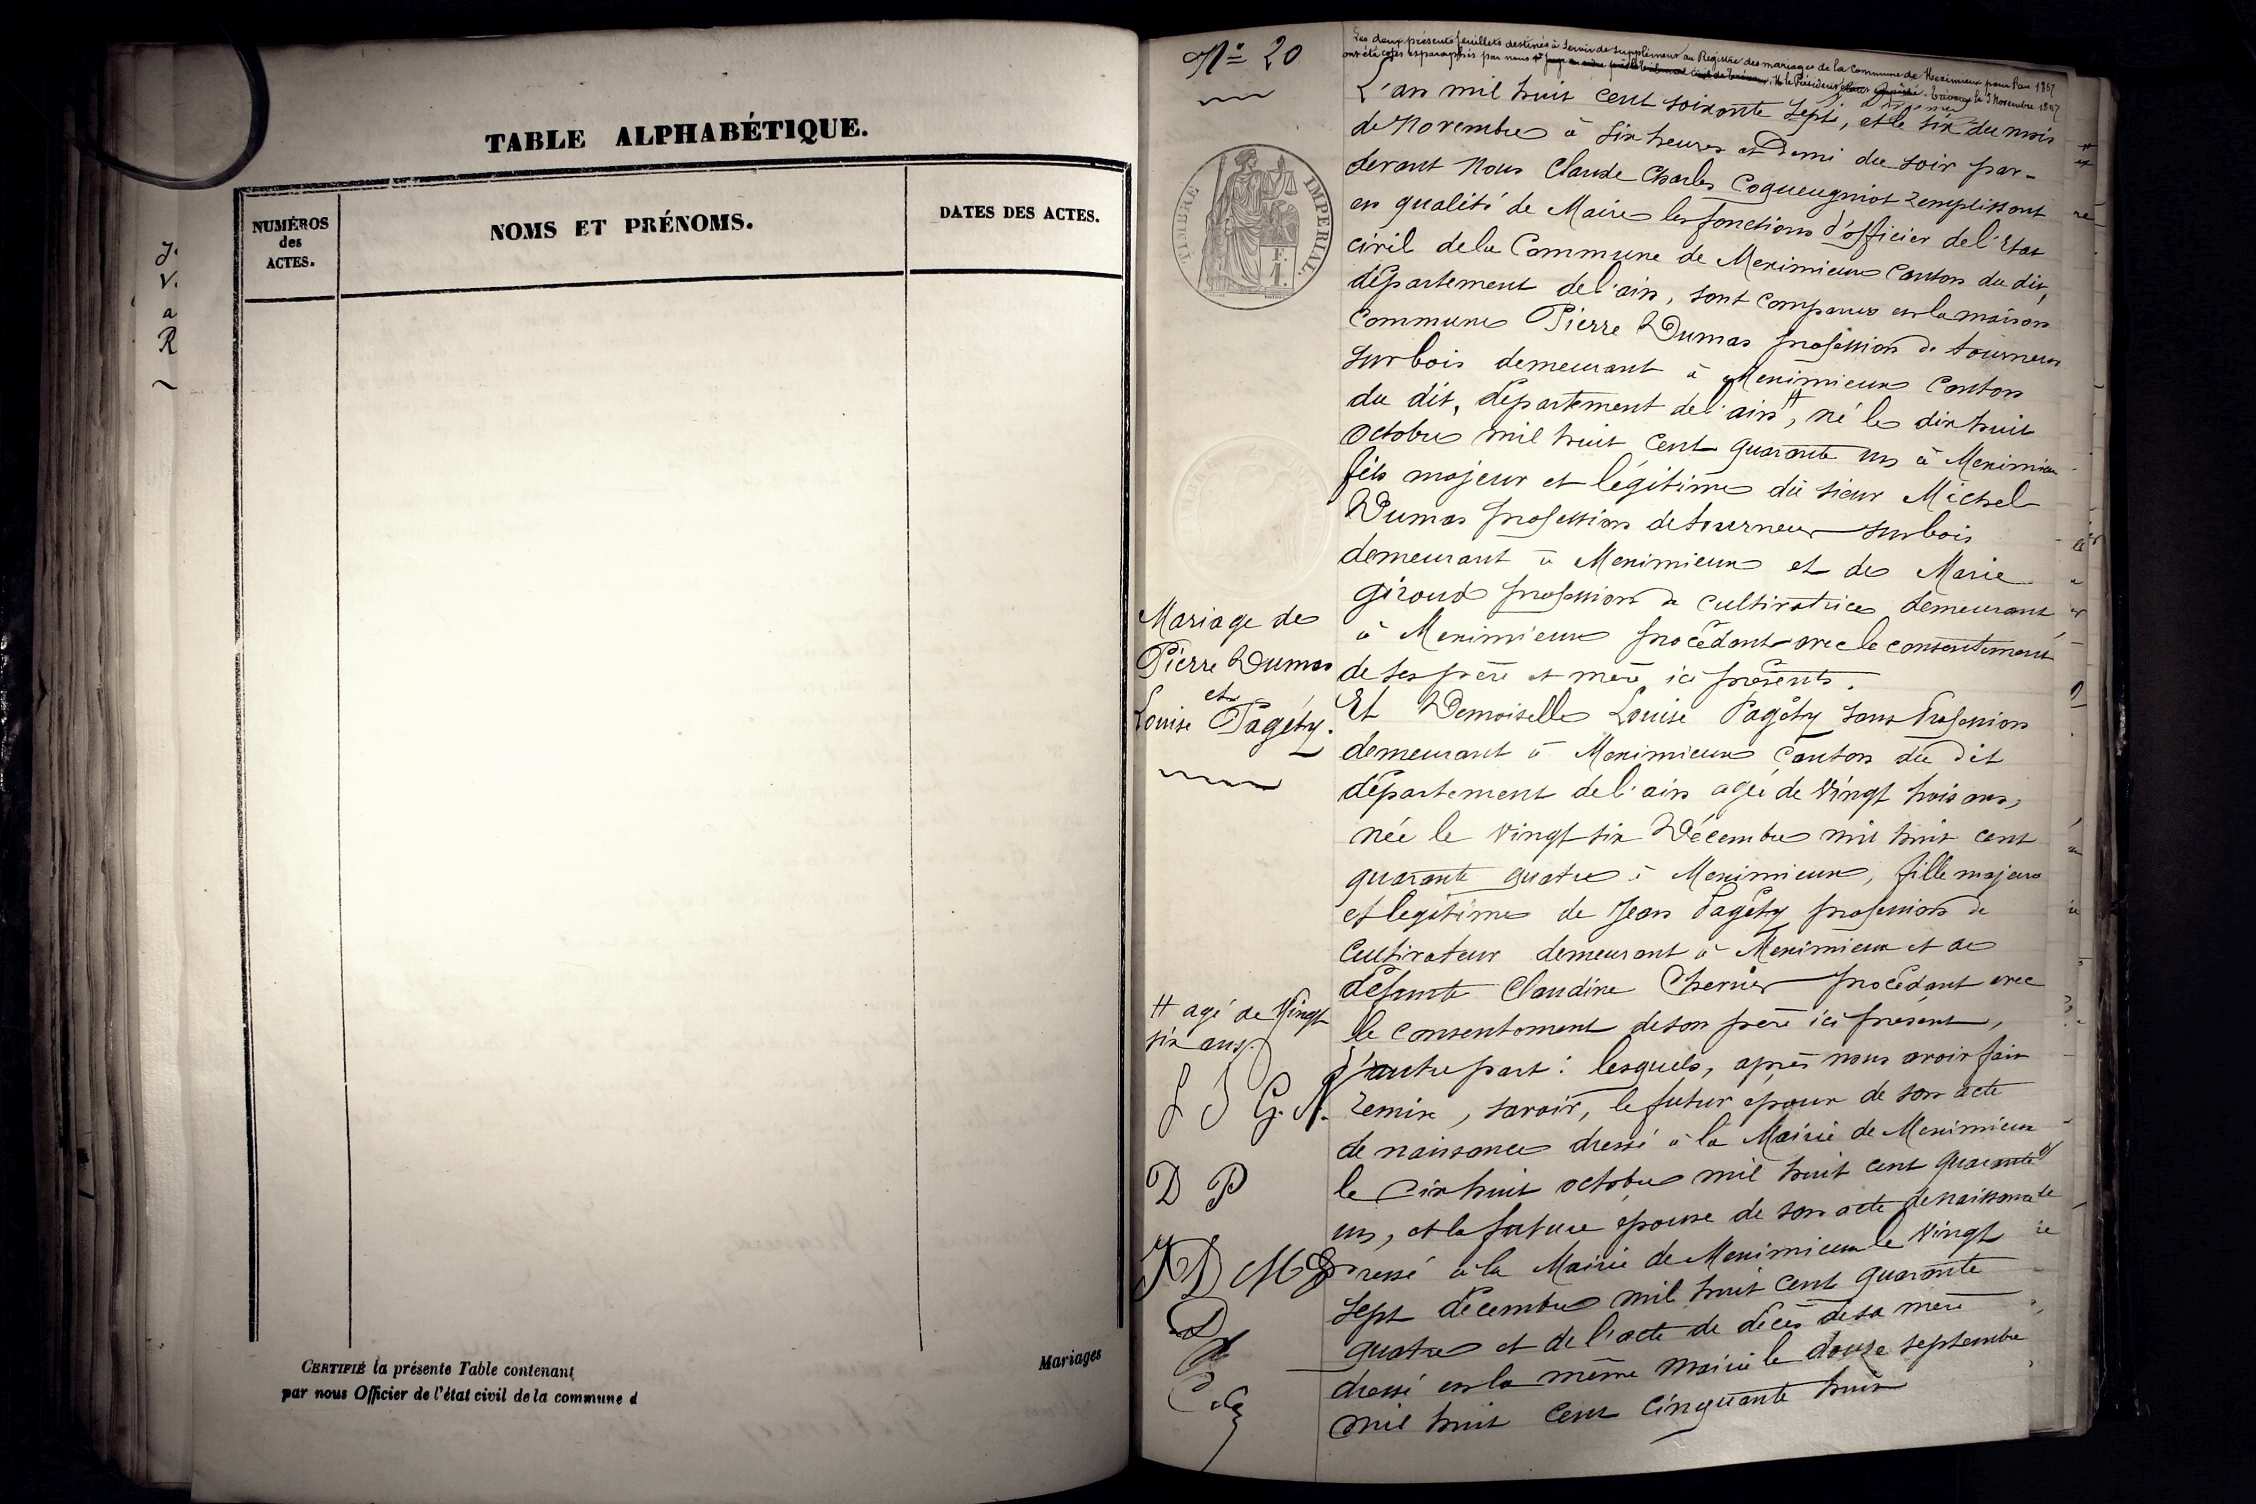 J.
V.
a
R
TABLE ALPHABÉTIQUE.
NUMÉROS
des
ACTES.
NOMS ET PRÉNOMS.
DATES DES ACTES.
CERTIFIÉ la présente Table contenant
Mariages
par nous Officier de l'état civil de la commune d
Nº 20
TIMBRE IMPERIAL.
F.
1.
Mariage de
Pierre Dumas
et
Louise Pagéty.
# agé de Vingt
six ans.
J J G. N.
D P
JD MG
Les deux présents feuillets destinés à servir de supplément au Registre des mariages de la Commune de Meximieux pour l'an 1867
ont été cotés et paraphés par nous le Président Trévoux le 5 Novembre 1867
L'an mil huit cent soixante sept, et le six du mois
de Novembre à six heures et Demi du soir par-
devant Nous Claude Charles Coqueugniot remplissant
en qualité de Maire les fonctions d'officier de l'Etat
civil de la Commune de Meximieux Canton du dit,
département de l'ain, sont comparus en la maison
Commune Pierre Dumas profession de tourneur
sur bois demeurant à Meximieux Canton
du dit, département de l'ain #, né le dix huit
Octobre mil huit cent quarante un à Meximieux
fils majeur et légitime du sieur Michel
Dumas profession de tourneur sur bois
demeurant à Meximieux et de Marie
Giroud profession de cultivatrice demeurant
à Meximieux procédant avec le consentement
de ses père et mère ici présents.
Et Demoiselle Louise Pagéty sans Profession
demeurant à Meximieux Canton du dit
département de l'ain agée de Vingt trois ans,
née le Vingt six Décembre mil huit cent
quarante quatre à Meximieux, fille majeure
et légitime de Jean Pagéty profession de
Cultivateur demeurant à Meximieux et de
défunte Claudine Chernier procédant avec
le consentement de son père ici présent,
d'autre part : lesquels, après nous avoir fait
remise, savoir, le futur époux de son acte
de naissance dressé à la Mairie de Meximieux
le Dix huit octobre mil huit cent quarante
un, et la future épouse de son acte de naissance
Dressé à la Mairie de Meximieux le Vingt
Sept décembre mil huit cent quarante
quatre et de l'acte de décès de sa mère
dressé en la même mairie le douze septembre
mil huit cent cinquante huit